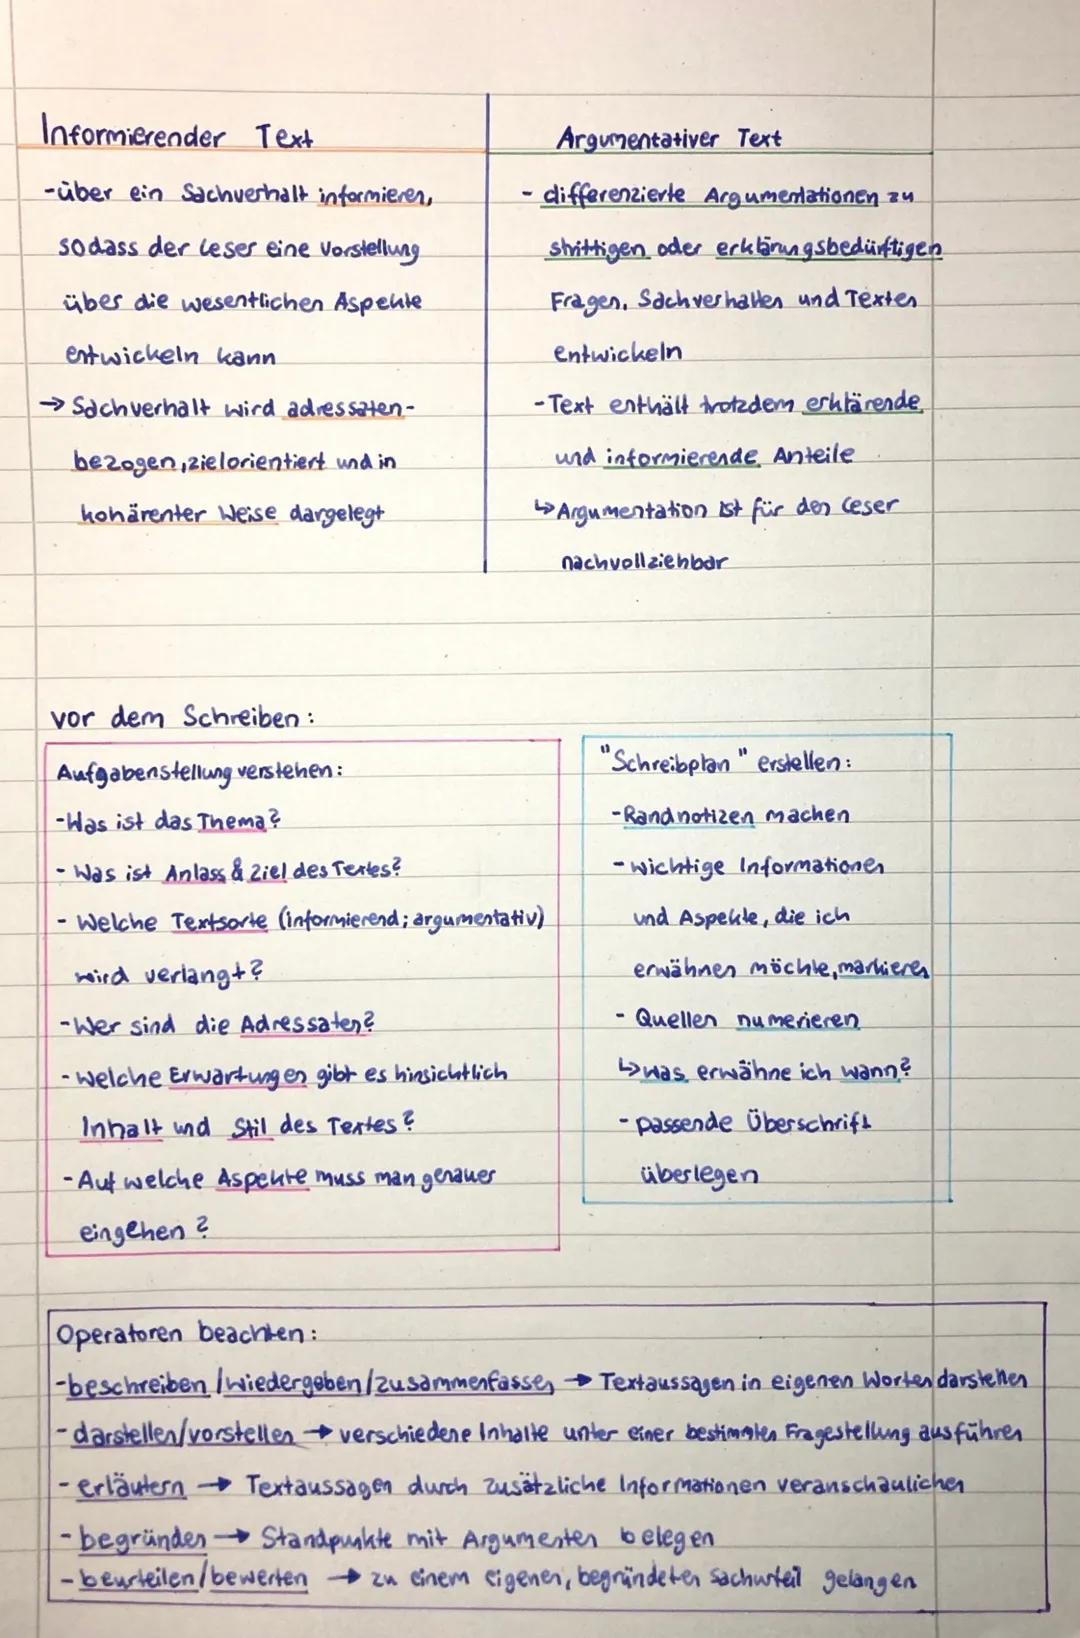 Informierender Text
-über ein Sachverhalt informieren,
sodass der Leser eine Vorstellung
über die wesentlichen Aspekte
entwickeln kann
→ Sachverhalt wird adressaten-
bezogen, zielorientiert und in
kohärenter Weise dargelegt
Argumentativer Text
- differenzierte Argumentationen zu
strittigen oder erklärungsbedürftigen
Fragen, Sachverhalten und Texten
entwickeln
-Text enthält trotzdem erklärende
und informierende Anteile
↳ Argumentation ist für den Leser
nachvollziehbar
vor dem Schreiben:
Aufgabenstellung verstehen:
-Was ist das Thema?
- Was ist Anlass & Ziel des Textes?
- Welche Textsorte (informierend; argumentativ)
wird verlangt?
-Wer sind die Adressaten?
-Welche Erwartungen gibt es hinsichtlich
Inhalt und Stil des Textes?
-Auf welche Aspekte muss man genauer
eingehen?
"Schreibplan" erstellen:
-Randnotizen machen
-wichtige Informationen
und Aspekte, die ich
erwähnen möchte, markieren
- Quellen numerieren
↳ was erwähne ich wann?
-passende Überschrift
überlegen
Operatoren beachten:
-beschreiben/wiedergeben/zusammenfassen → Textaussagen in eigenen Worten darstellen
- darstellen/vorstellen → verschiedene Inhalte unter einer bestimmten Fragestellung ausführen
- erläutern → Textaussagen durch zusätzliche Informationen veranschaulichen
- begründen → Standpunkte mit Argumenten belegen
- beurteilen/bewerten → zu einem eigenen, begründeten Sachurteil gelangen